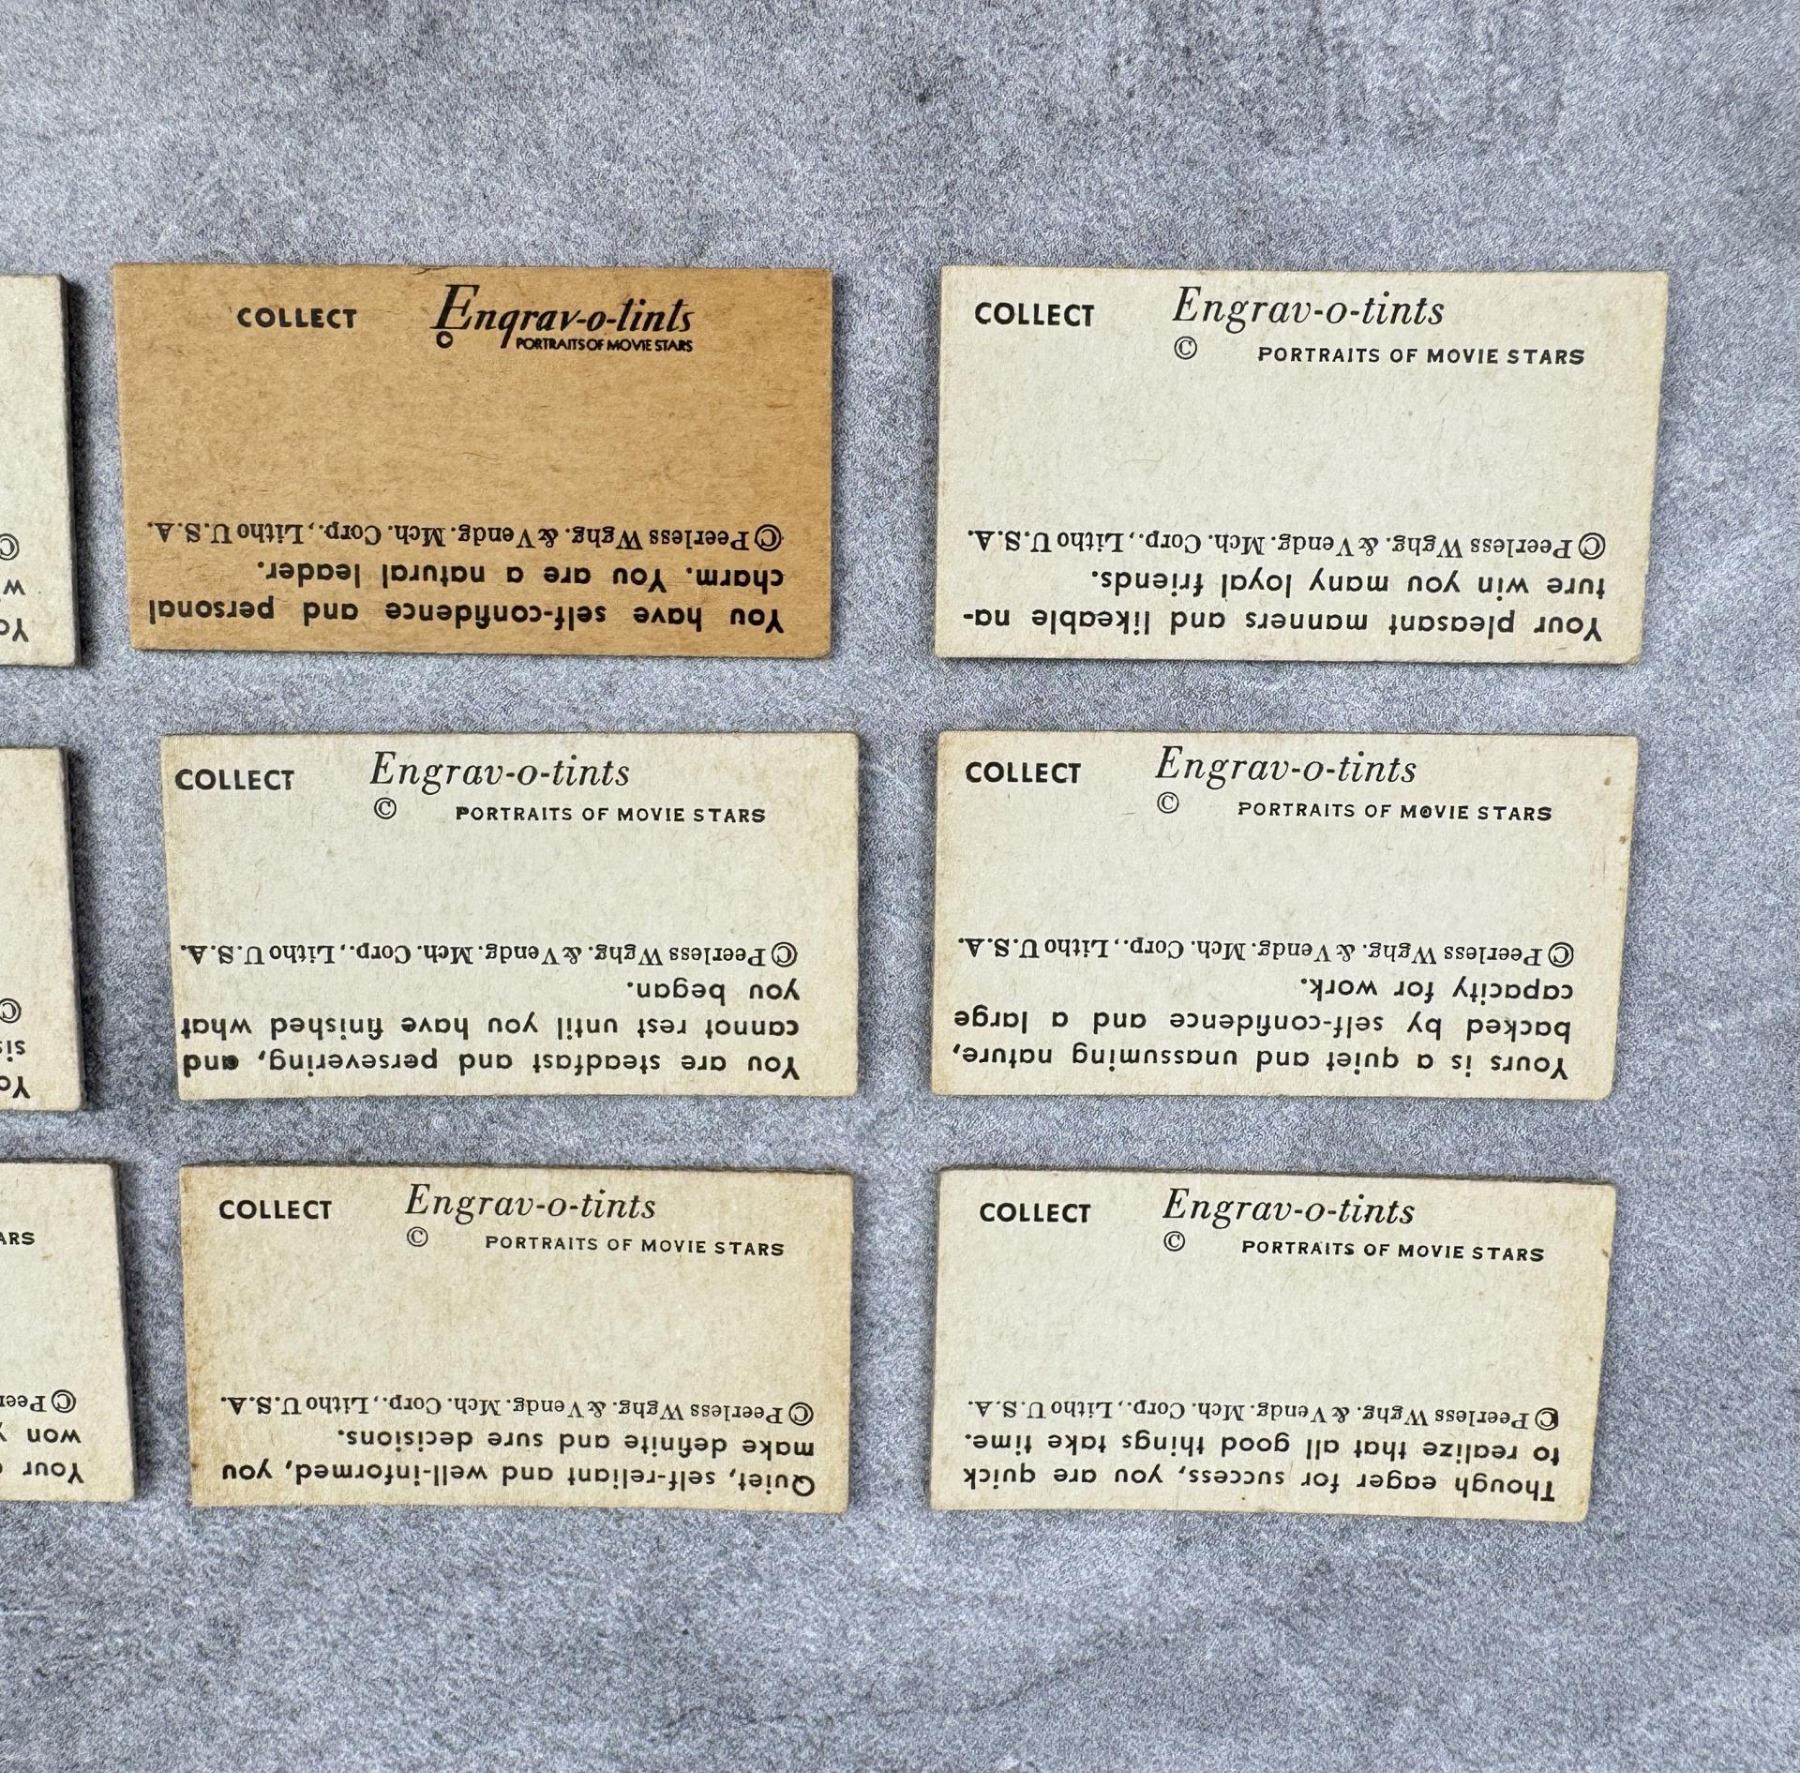 COLLECT Engrav-o-tints
© PORTRAITS OF MOVIE STARS
You have self-confidence and personal
charm. You are a natural leader.
© Peerless Wghg. & Vendg. Mch. Corp., Litho U.S.A.
COLLECT Engrav-o-tints
© PORTRAITS OF MOVIE STARS
Your pleasant manners and likeable na-
ture win you many loyal friends.
© Peerless Wghg. & Vendg. Mch. Corp., Litho U.S.A.
COLLECT Engrav-o-tints
© PORTRAITS OF MOVIE STARS
You are steadfast and persevering, and
cannot rest until you have finished what
you began.
© Peerless Wghg. & Vendg. Mch. Corp., Litho U.S.A.
COLLECT Engrav-o-tints
© PORTRAITS OF MOVIE STARS
Yours is a quiet and unassuming nature,
backed by self-confidence and a large
capacity for work.
© Peerless Wghg. & Vendg. Mch. Corp., Litho U.S.A.
Your
won
©
COLLECT Engrav-o-tints
© PORTRAITS OF MOVIE STARS
Quiet, self-reliant and well-informed, you
make definite and sure decisions.
© Peerless Wghg. & Vendg. Mch. Corp., Litho U.S.A.
COLLECT Engrav-o-tints
© PORTRAITS OF MOVIE STARS
Though eager for success, you are quick
to realize that all good things take time.
© Peerless Wghg. & Vendg. Mch. Corp., Litho U.S.A.